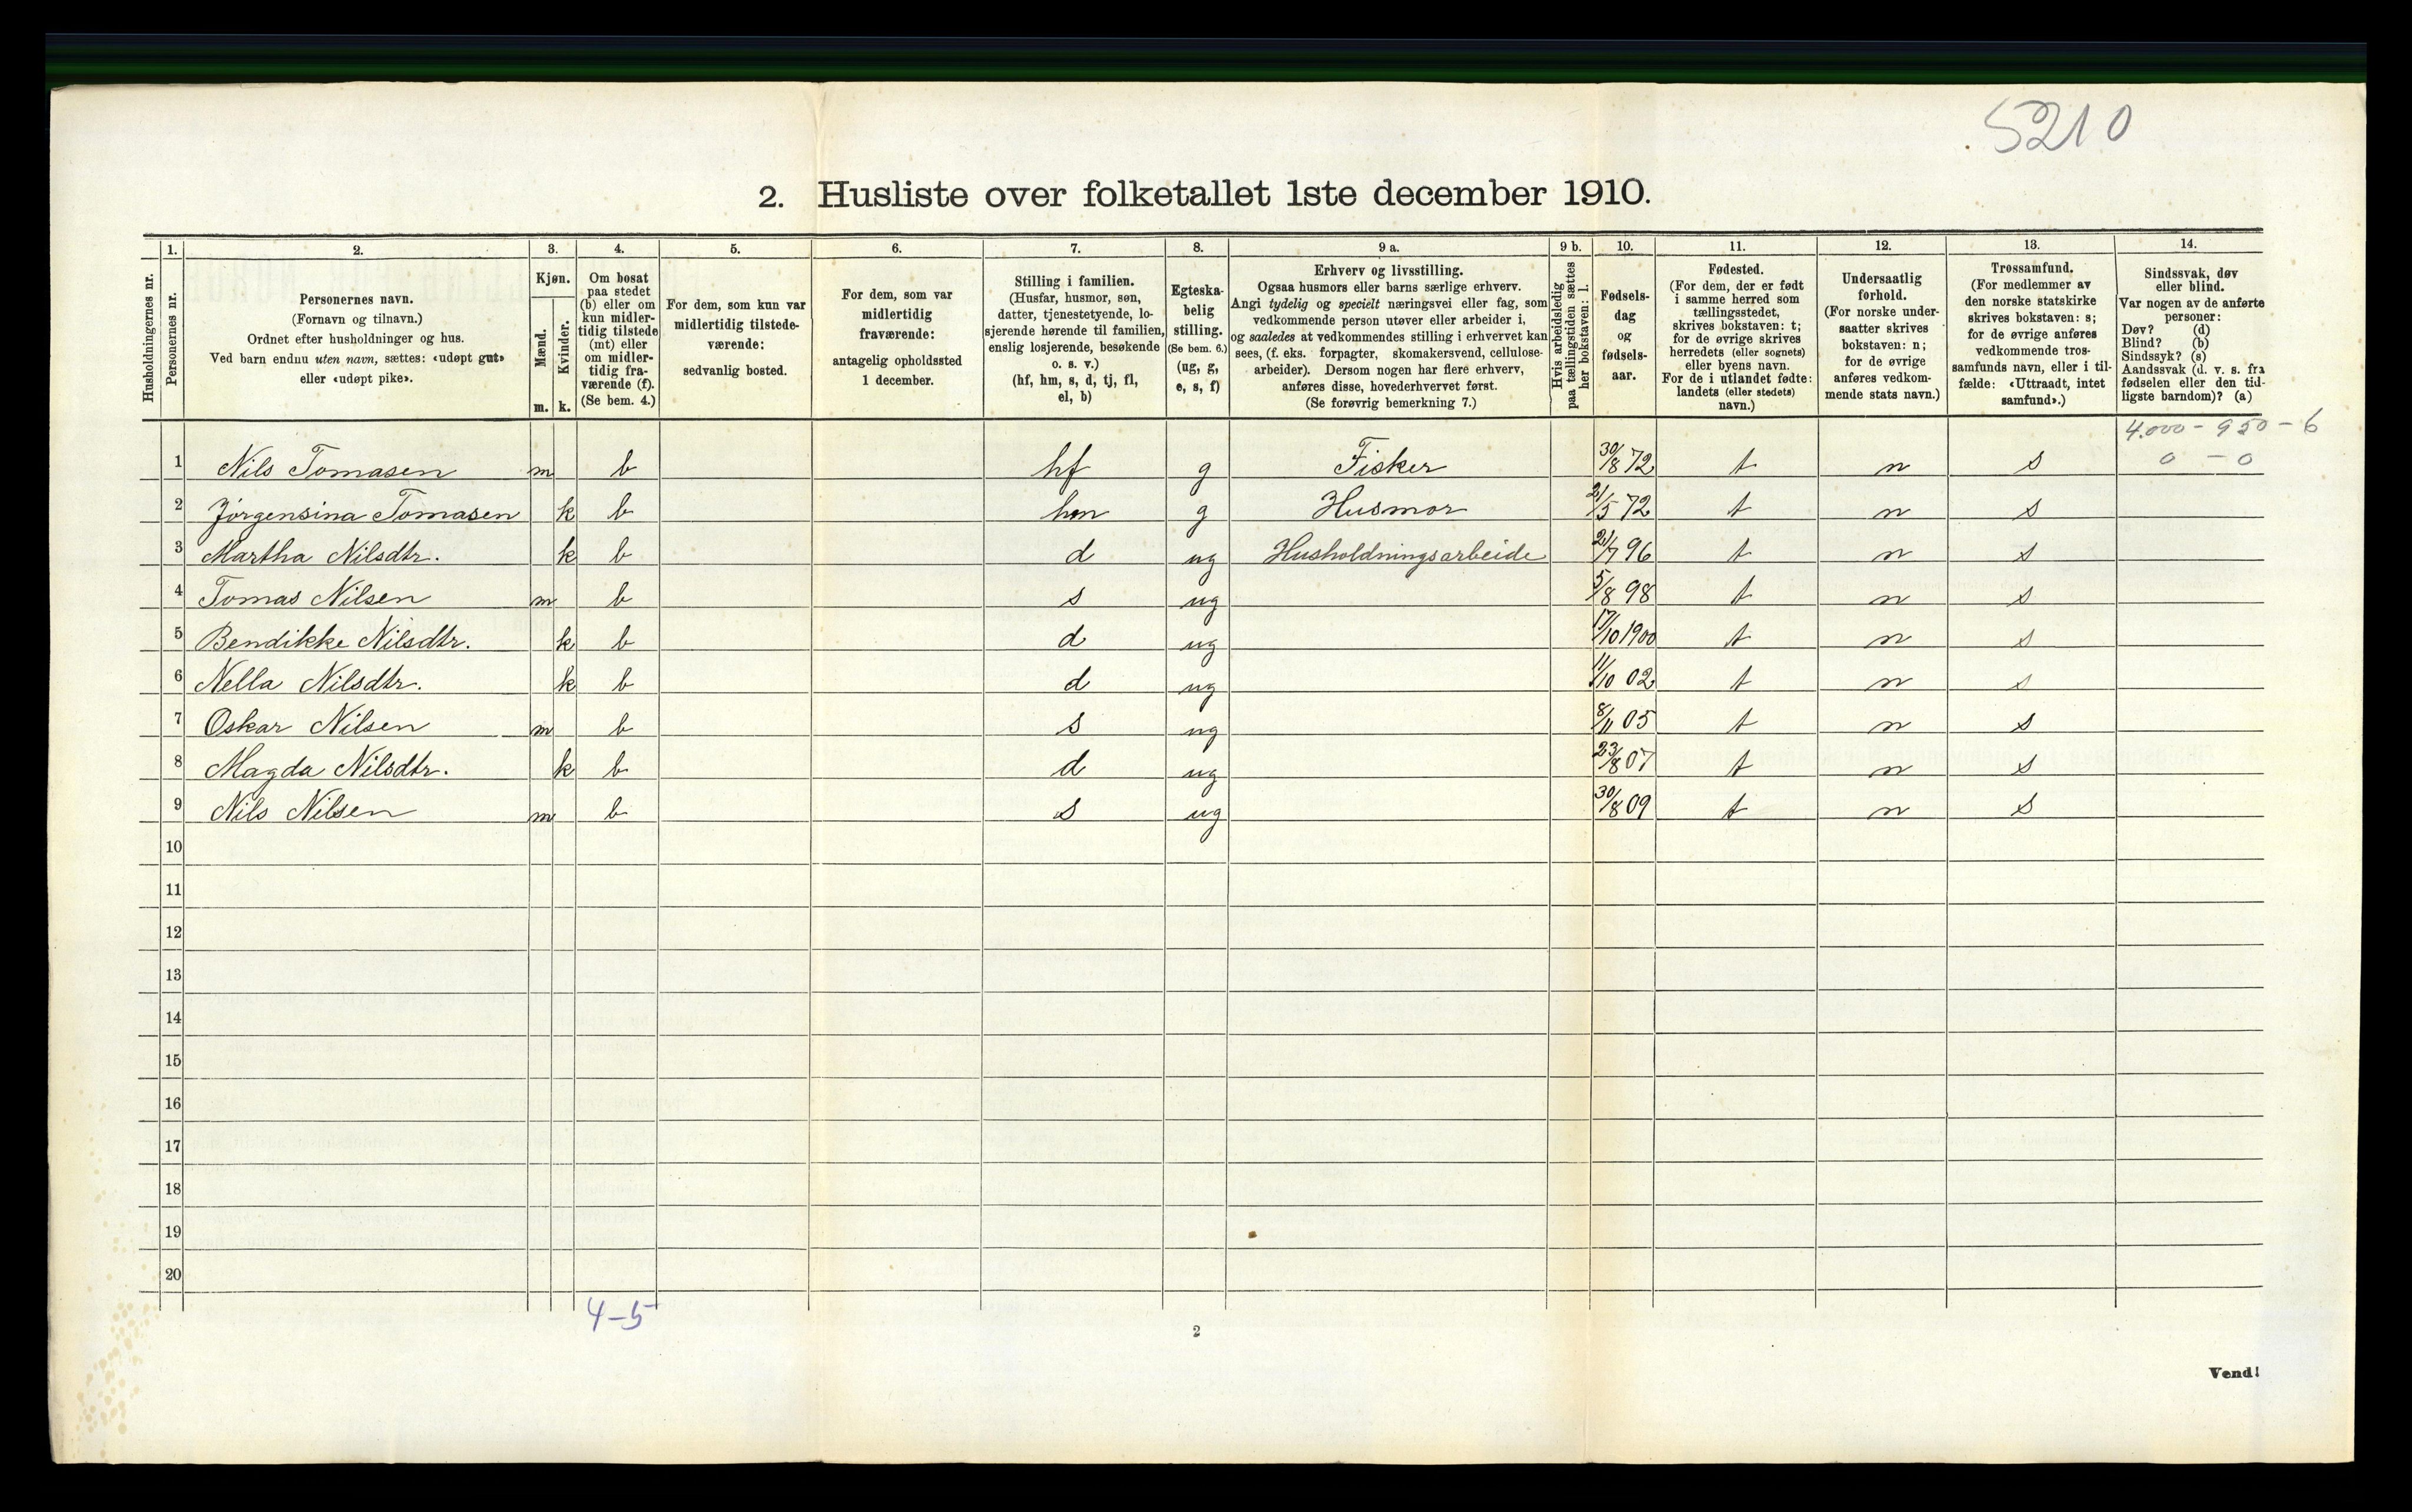 5210
2. Husliste over folketallet 1ste december 1910.
Husholdningernes nr.
1.
Personernes nr.
2.
Personernes navn.
(Fornavn og tilnavn.)
Ordnet efter husholdninger og hus.
Ved barn endnu uten navn, sættes: «udøpt gut»
eller «udøpt pike».
3.
Kjøn.
Mænd.
Kvinder.
m. k.
4.
Om bosat
paa stedet
(b) eller om
kun midler-
tidig tilstede
(mt) eller
om midler-
tidig fra-
værende (f).
(Se bem. 4.)
5.
For dem, som kun var
midlertidig tilstede-
værende:
sedvanlig bosted.
6.
For dem, som var
midlertidig
fraværende:
antagelig opholdssted
1 december.
7.
Stilling i familien.
(Husfar, husmor, søn,
datter, tjenestetyende, lo-
sjerende hørende til familien,
enslig losjerende, besøkende
o. s. v.)
(hf, hm, s, d, tj, fl,
el, b)
8.
Egteska-
belig
stilling.
(Se bem. 6.)
(ug, g,
e, s, f)
9 a.
Erhverv og livsstilling.
Ogsaa husmors eller barns særlige erhverv.
Angi tydelig og specielt næringsvei eller fag, som
vedkommende person utøver eller arbeider i,
og saaledes at vedkommendes stilling i erhvervet kan
sees, (f. eks. forpagter, skomakersvend, cellulose-
arbeider). Dersom nogen har flere erhverv,
anføres disse, hovederhvervet først.
(Se forøvrig bemerkning 7.)
9 b.
Hvis arbeidsledig
paa tællingstiden sættes
her bokstaven: l.
10.
Fødsels-
dag
og
fødsels-
aar.
11.
Fødested.
(For dem, der er født
i samme herred som
tællingsstedet,
skrives bokstaven: t;
for de øvrige skrives
herredets (eller sognets)
eller byens navn.
For de i utlandet fødte:
landets (eller stedets)
navn.)
12.
Undersaatlig
forhold.
(For norske under-
saatter skrives
bokstaven: n;
for de øvrige
anføres vedkom-
mende stats navn.)
13.
Trossamfund.
(For medlemmer av
den norske statskirke
skrives bokstaven: s;
for de øvrige anføres
vedkommende tros-
samfunds navn, eller i til-
fælde: «Uttraadt, intet
samfund».)
14.
Sindssvak, døv
eller blind.
Var nogen av de anførte
personer:
Døv? (d)
Blind? (b)
Sindssyk? (s)
Aandssvak (d. v. s. fra
fødselen eller den tid-
ligste barndom)? (a)
4.000 - 950 - 6
0 - 0
1 Nils Tomasen m b hf g Fisker 30/8 72 t n s
2 Jørgensina Tomasen k b hm g Husmor 21/5 72 t n s
3 Martha Nilsdtr. k b d ug Husholdningsarbeide 21/7 96 t n s
4 Tomas Nilsen m b s ug 5/8 98 t n s
5 Bendikke Nilsdtr. k b d ug 17/10 1900 t n s
6 Nella Nilsdtr. k b d ug 11/10 02 t n s
7 Oskar Nilsen m b s ug 8/11 05 t n s
8 Magda Nilsdtr. k b d ug 23/8 07 t n s
9 Nils Nilsen m b s ug 30/8 09 t n s
10
11
12
13
14
15
16
17
18
19
20
4-5
2
Vend!